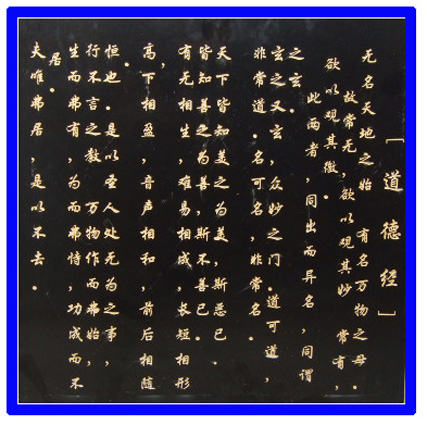 [道德经]
无名天地之始 有名万物之母.
故常无,欲以观其妙 常有,
欲以观其徼.
此两者,同出而异名,同谓
之玄.
玄之又玄,众妙之门.道可道,
非常道.名可名,非常名.
天下皆知美之为美,斯恶已.
皆知善之为善,斯不善已.
有无相生,难易相成,长短相形
高,下相盈,音声相和,前后相随
恒也.是以圣人处无为之事,
行不言之教 万物作而弗始,
生而弗有,为而弗恃,功成而不
居.
夫唯弗居,是以不去.